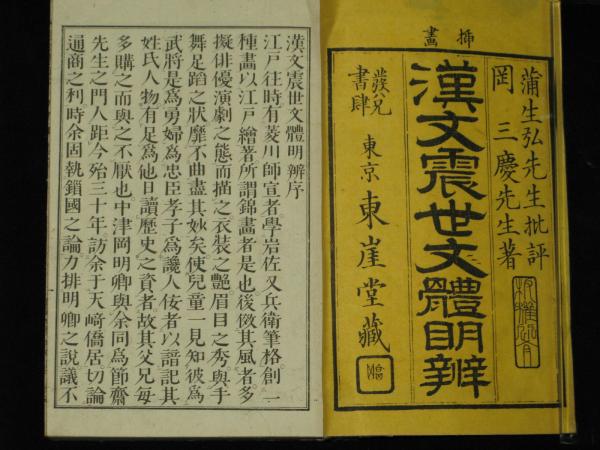 挿畫
蒲生弘先生批評
岡三慶先生著
漢文震世文體明辨
發兌
書肆
東京東崖堂藏
漢文震世文體明辨序
江戸往時有菱川師宣者學岩佐又兵衛筆格創一
種畫以江戸繪著所謂錦畫者是也後倣其風者多
擬俳優演劇之態而描之衣装之艷眉目之秀與手
舞足蹈之狀靡不曲盡其妙矣使兒童一見知彼爲
武將是爲勇婦爲忠臣孝子爲讒人佞者以諳記其
姓氏人物有足爲他日讀歴史之資者故其父兄毎
多購之而與之不厭也中津岡明卿與余同爲節齋
先生之門人距今殆三十年訪余于天﨑僑居切論
通商之利時余固執鎖國之論力排明卿之說議不